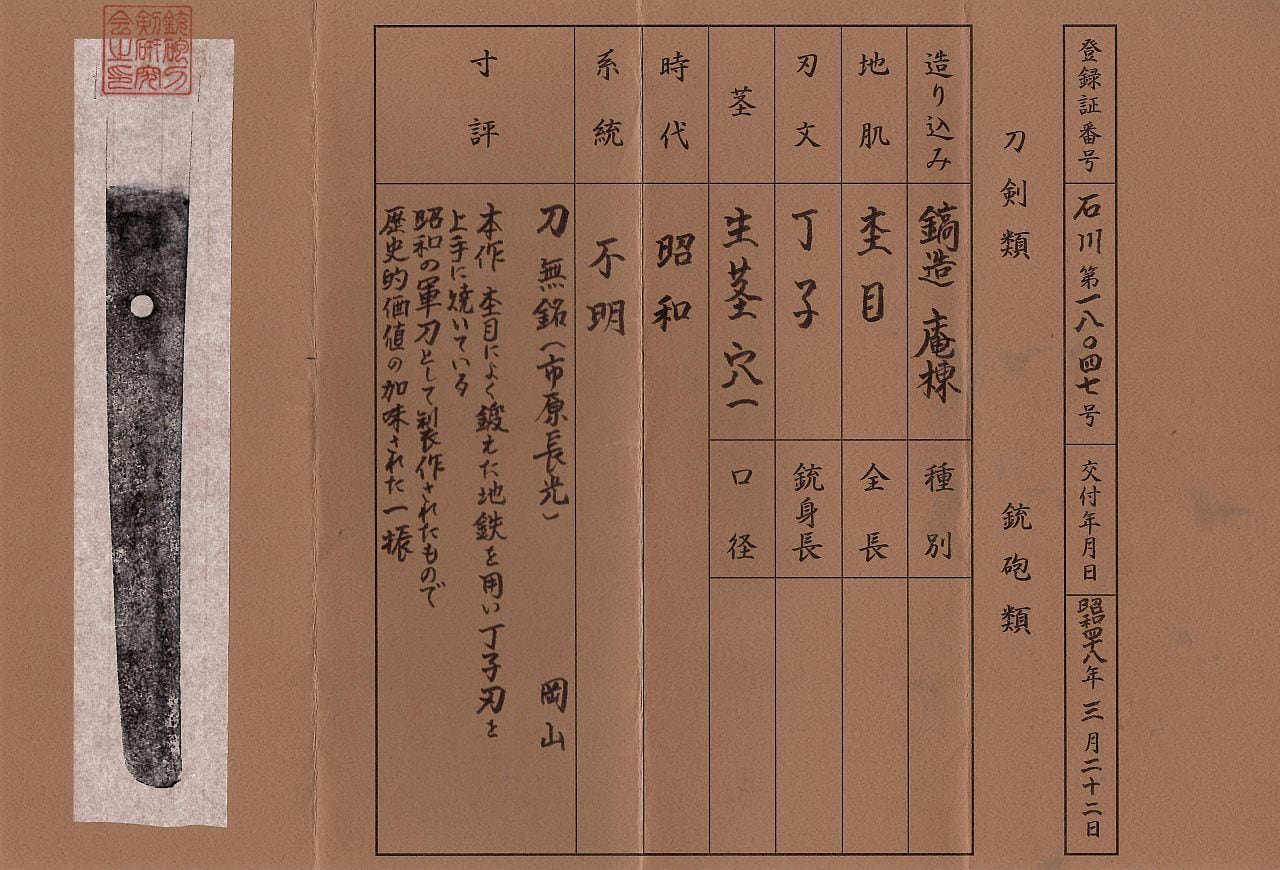 登録証番号 石川 第一八〇四七号 交付年月日 昭和四十八年 三月二十二日
刀剣類 銃砲類
造り込み 鎬造 庵棟 種別
地肌 杢目 全長
刃文 丁子 銃身長
茎 生茎 穴一 口径
時代 昭和
系統 不明
寸評
刀 無銘(市原長光) 岡山
本作 杢目によく鍛えた地鉄を用い丁子刃を
上手に焼いている
昭和の軍刀として製作されたもので
歴史的価値の加味された一振
銃砲刀
剣研究
会之印